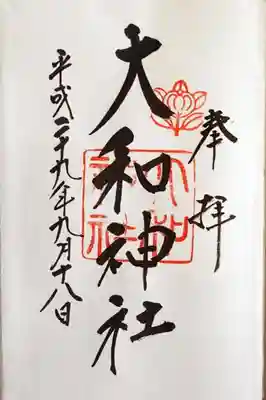 奉拝
大和神社
平成二十九年九月十八日